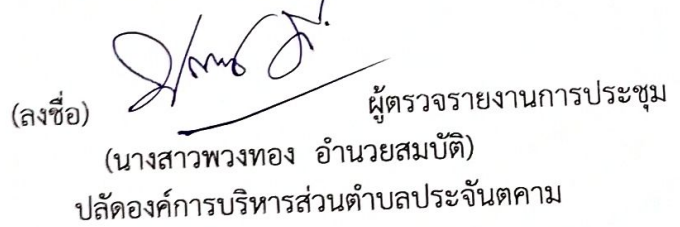 (ลงชื่อ) ผู้ตรวจรายงานการประชุม
(นางสาวพวงทอง อำนวยสมบัติ)
ปลัดองค์การบริหารส่วนตำบลประจันตคาม